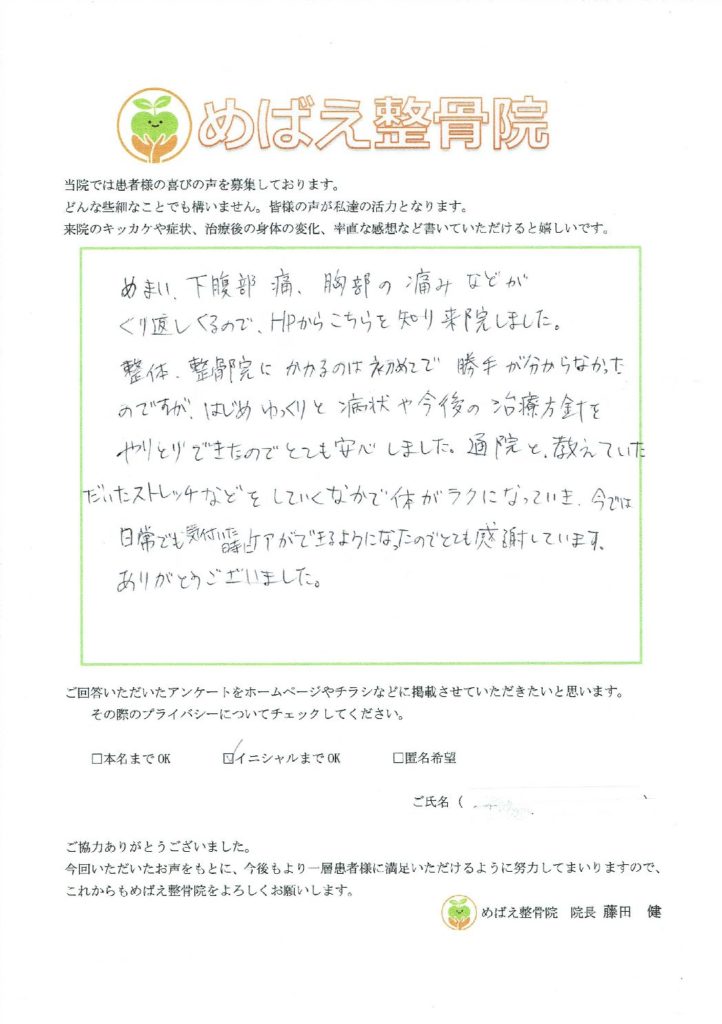 めばえ整骨院
当院では患者様の喜びの声を募集しております。
どんな些細なことでも構いません。皆様の声が私達の活力となります。
来院のキッカケや症状、治療後の身体の変化、率直な感想など書いていただけると嬉しいです。
めまい、下腹部痛、胸部の痛みなどが
くり返しくるので、HPからこちらを知り来院しました。
整体、整骨院にかかるのは初めてで勝手が分からなかった
のですが、はじめゆっくりと病状や今後の治療方針を
やりとりできたのでとても安心しました。通院と、教えていた
だいたストレッチなどをしていくなかで体がラクになっていき、今では
日常でも気付いた時にケアができるようになったのでとても感謝しています。
ありがとうございました。
ご回答いただいたアンケートをホームページやチラシなどに掲載させていただきたいと思います。
その際のプライバシーについてチェックしてください。
□本名までOK ☑イニシャルまでOK □匿名希望
ご氏名（ ）
ご協力ありがとうございました。
今回いただいたお声をもとに、今後もより一層患者様に満足いただけるように努力してまいりますので、
これからもめばえ整骨院をよろしくお願いします。
めばえ整骨院 院長 藤田 健